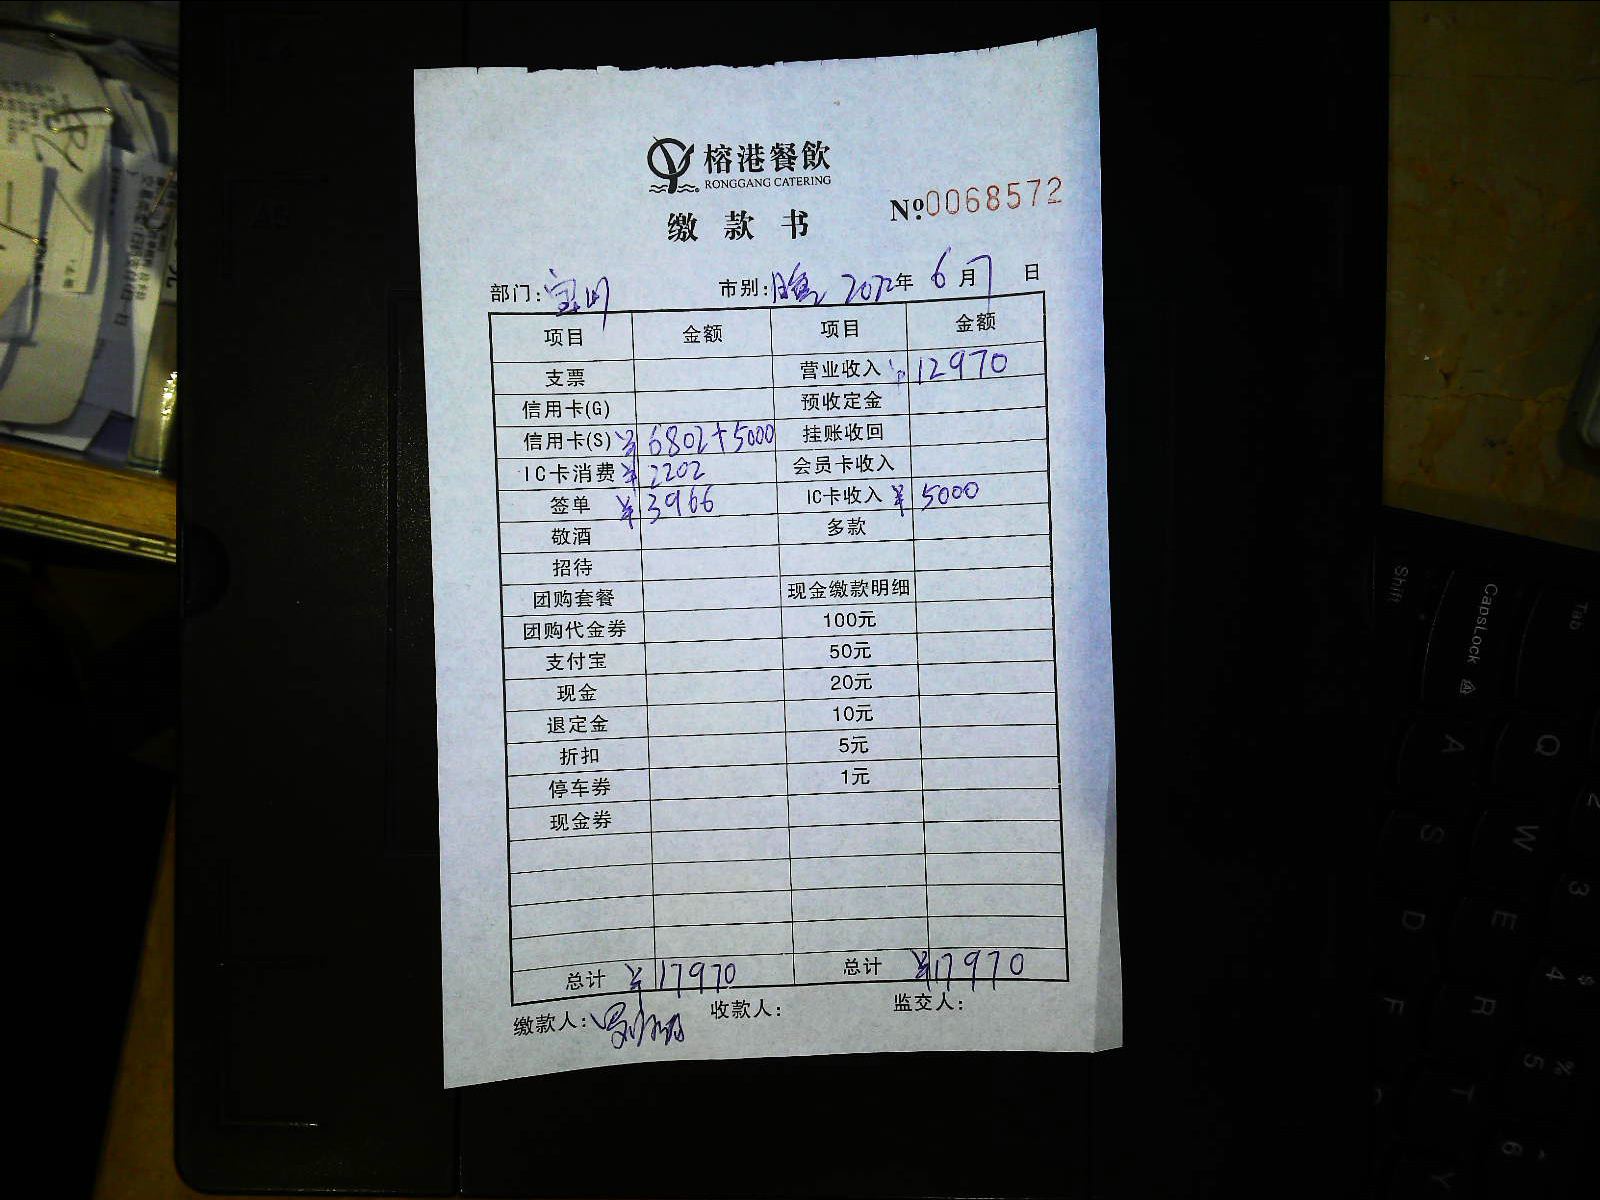 榕港餐飲
RONGGANG CATERING
缴款书
№0068572
部门: 市别: 2022年 6月 7日
项目 金额 项目 金额
支票 营业收入 ¥ 12970
信用卡(G) 预收定金
信用卡(S) ¥ 6802+5000 挂账收回
IC卡消费 ¥ 2202 会员卡收入
签单 ¥ 3966 IC卡收入 ¥ 5000
敬酒 多款
招待
团购套餐 现金缴款明细
团购代金券 100元
支付宝 50元
现金 20元
退定金 10元
折扣 5元
停车券 1元
现金券
总计 ¥ 17970 总计 ¥17970
缴款人: 收款人: 监交人:
Shift
CapsLock
Tab
A
Q
S
W
D
E
3
F
R
4
$
T
5
%
6
Y